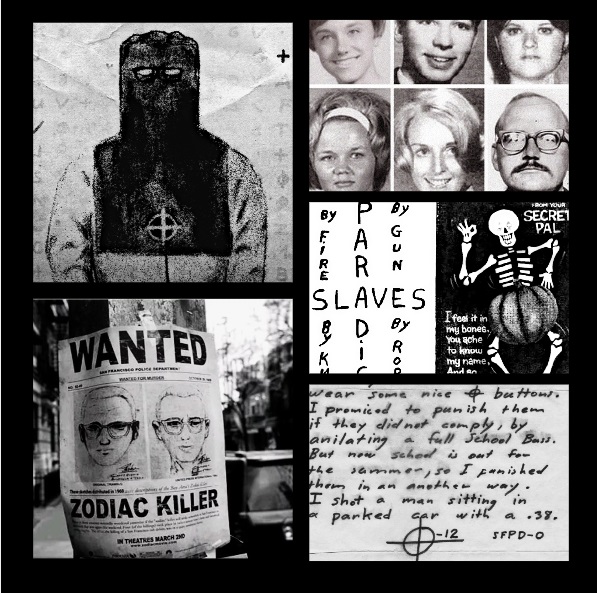 BY FIRE
PARADiC
BY GUN
SLAVES
By
By ROP
FROM YOUR
SECRET
PAL
I feel it in
my bones.
You ache
to know
my name,
And so
WANTED
SAN FRANCISCO POLICE DEPARTMENT
WANTED FOR MURDER
ZODIAC KILLER
IN THEATRES MARCH 2ND
www.zodiacmovie.com
wear some nice ⌖ buttons.
I promiced to punish them
if they did not comply, by
anilating a full School Buss.
But now school is out for
the summer, so I punished
them in an another way.
I shot a man sitting in
a parked car with a .38.
⌖-12 SFPD-0